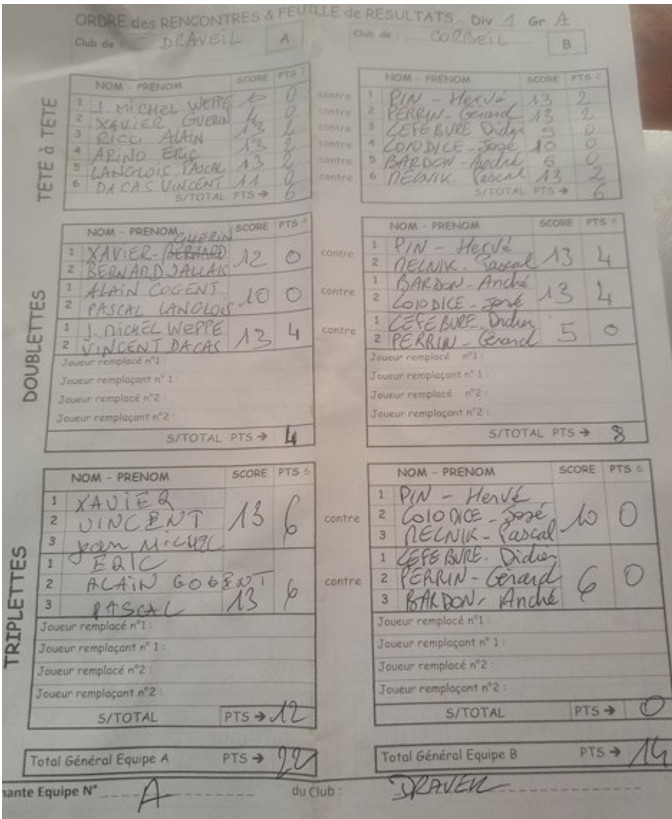 ORDRE des RENCONTRES & FEUILLE de RESULTATS Div 1 Gr A
Club de : DRAVEIL A Club de : CORBEIL B
TETE à TETE
NOM - PRENOM SCORE PTS 2 NOM - PRENOM SCORE PTS 2
1 J. MICHEL WEPPE 6 0 contre 1 PIN - Hervé 13 2
2 XAVIER GUERIN 4 0 contre 2 PERRIN - Gérard 13 2
3 RICCI ALAIN 13 2 contre 3 LEFEBURE Didier 9 0
4 ARINO ERIC 13 2 contre 4 LOIODICE - José 10 0
5 LANGLOIS PASCAL 13 2 contre 5 BARDON - André 6 0
6 DACAS VINCENT 11 0 contre 6 MELNIK - Pascal 13 2
S/TOTAL PTS → 6 S/TOTAL PTS → 6
DOUBLETTES
NOM - PRENOM SCORE PTS 4 NOM - PRENOM SCORE PTS 4
1 XAVIER GUERIN 12 0 contre 1 PIN - Hervé 13 4
2 BERNARD JALLAIS 2 MELNIK - Pascal
1 ALAIN COGENT 10 0 contre 1 BARDON - André 13 4
2 PASCAL LANGLOIS 2 LOIODICE - José
1 J. MICHEL WEPPE 13 4 contre 1 LEFEBURE - Didier 5 0
2 VINCENT DACAS 2 PERRIN - Gérard
Joueur remplacé n°1 : Joueur remplacé n°1 :
Joueur remplaçant n° 1 : Joueur remplaçant n° 1 :
Joueur remplacé n°2 : Joueur remplacé n°2 :
Joueur remplaçant n°2 : Joueur remplaçant n°2 :
S/TOTAL PTS → 4 S/TOTAL PTS → 8
TRIPLETTES
NOM - PRENOM SCORE PTS 6 NOM - PRENOM SCORE PTS 6
1 XAVIER 13 6 contre 1 PIN - Hervé 10 0
2 VINCENT 2 LOIODICE - José
3 Jean MICHEL 3 MELNIK - Pascal
1 ERIC 13 6 contre 1 LEFEBURE - Didier 6 0
2 ALAIN GOGENT 2 PERRIN - Gérard
3 PASCAL 3 BARDON - André
Joueur remplacé n°1 : Joueur remplacé n°1 :
Joueur remplaçant n° 1 : Joueur remplaçant n° 1 :
Joueur remplacé n°2 : Joueur remplacé n°2 :
Joueur remplaçant n°2 : Joueur remplaçant n°2 :
S/TOTAL PTS → 12 S/TOTAL PTS → 0
Total Général Equipe A PTS → 22 Total Général Equipe B PTS → 14
nante Equipe N° A du Club : DRAVEIL